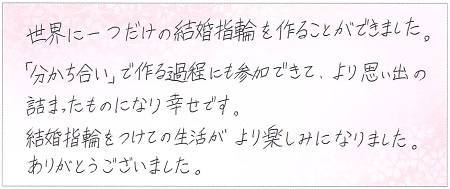 世界に一つだけの結婚指輪を作ることができました。
「分かち合い」で作る過程にも参加できて、より思い出の
詰まったものになり幸せです。
結婚指輪をつけての生活が より楽しみになりました。
ありがとうございました。